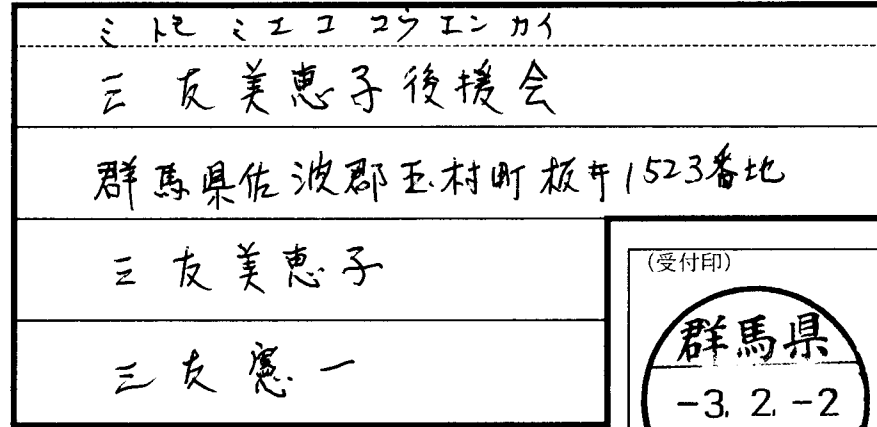 ミトモ ミエコ コウエンカイ
三友美恵子後援会
群馬県佐波郡玉村町板井1523番地
三友美恵子
三友憲一
(受付印)
群馬県
-3. 2. -2